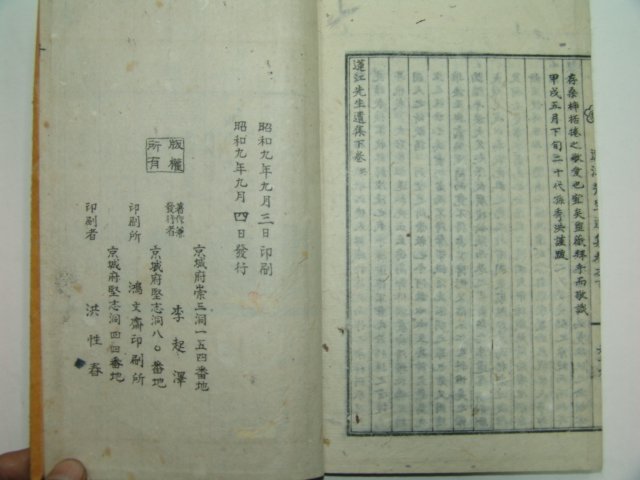 存桑梓栝棬之敬
甲戌五月下旬二十代孫秀洪謹跋
蓮江先生遺集下卷
昭和九年九月三日印刷
昭和九年九月四日發行
版權所有
京城府崇三洞一五四番地
著作兼發行者 李起澤
京城府堅志洞八〇番地
印刷所 鴻文齋印刷所
京城府堅志洞四四番地
印刷者 洪性春